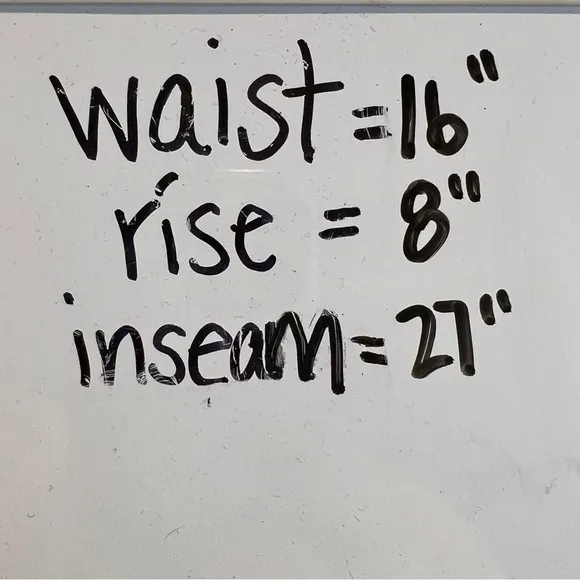 waist = 16"
rise = 8"
inseam = 27"